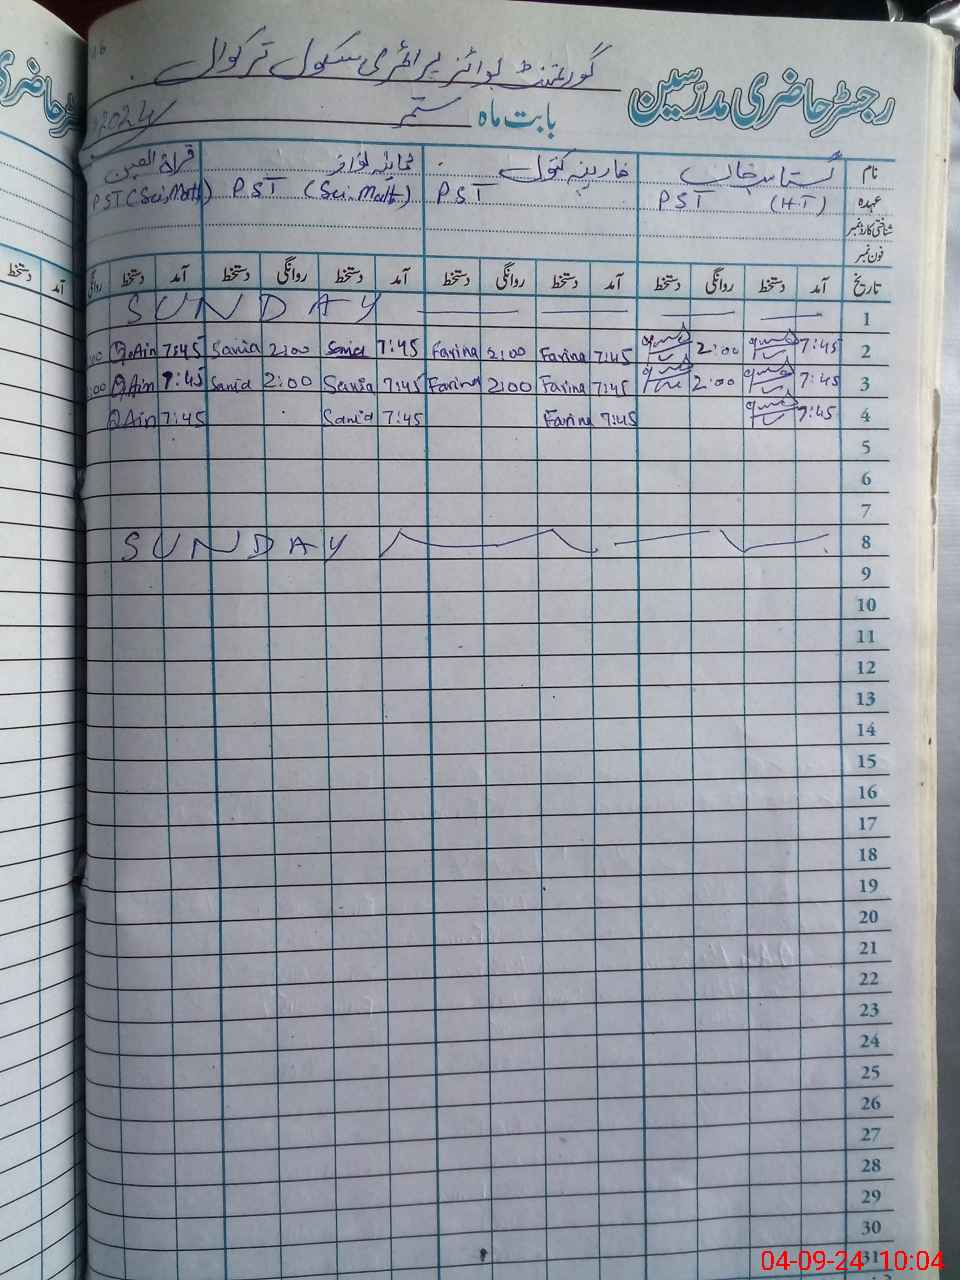 گورنمنٹ بوائز پرائمری سکول ترکوال
رجسٹر حاضری مدرسین
بابت ماہ ستمبر 2024
نام گستاسپ خان فارینہ بتول ثانیہ نواز قراۃ العین
عہدہ PST (HT) PST PST (Sci, Math) PST (Sci, Math)
شناختی کارڈ نمبر
فون نمبر
تاریخ آمد دستخط روانگی دستخط آمد دستخط روانگی دستخط آمد دستخط روانگی دستخط آمد دستخط روانگی
SUNDAY 1
:00 Q.Ain 7:45 Sania 2:00 Sania 7:45 Farina 2:00 Farina 7:45 2:00 7:45 2
:00 Q.Ain 7:45 Sania 2:00 Sania 7:45 Farina 2:00 Farina 7:45 2:00 7:45 3
Q.Ain 7:45 Sania 7:45 Farina 7:45 7:45 4
5
6
7
SUNDAY 8
9
10
11
12
13
14
15
16
17
18
19
20
21
22
23
24
25
26
27
28
29
30
31
04-09-24 10:04